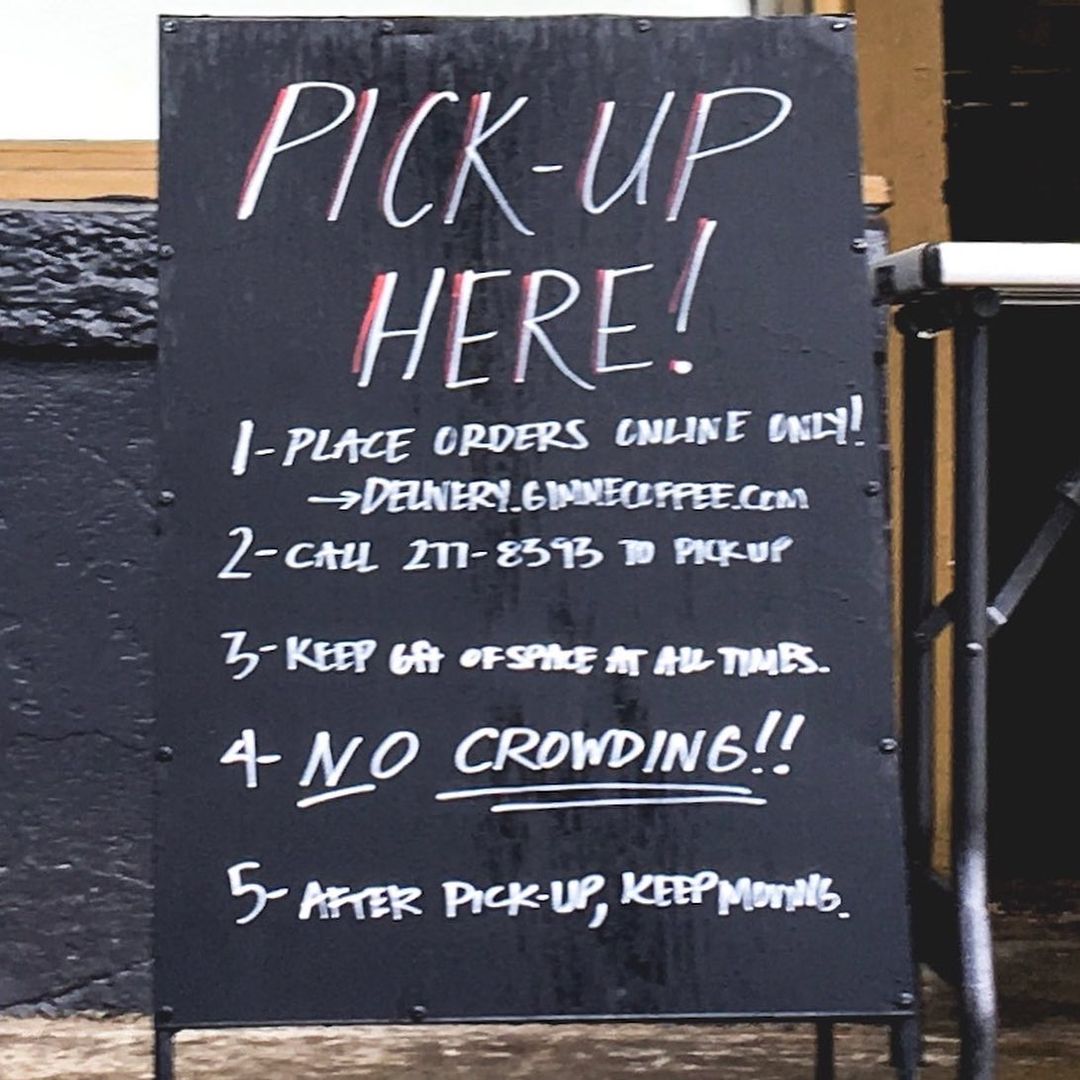 PICK-UP
HERE!
1-PLACE ORDERS ONLINE ONLY!
→DELIVERY.GIMMECOFFEE.COM
2-CALL 277-8393 TO PICK UP
3-KEEP 6ft OF SPACE AT ALL TIMES.
4-NO CROWDING!!
5-AFTER PICK-UP, KEEP MOVING.